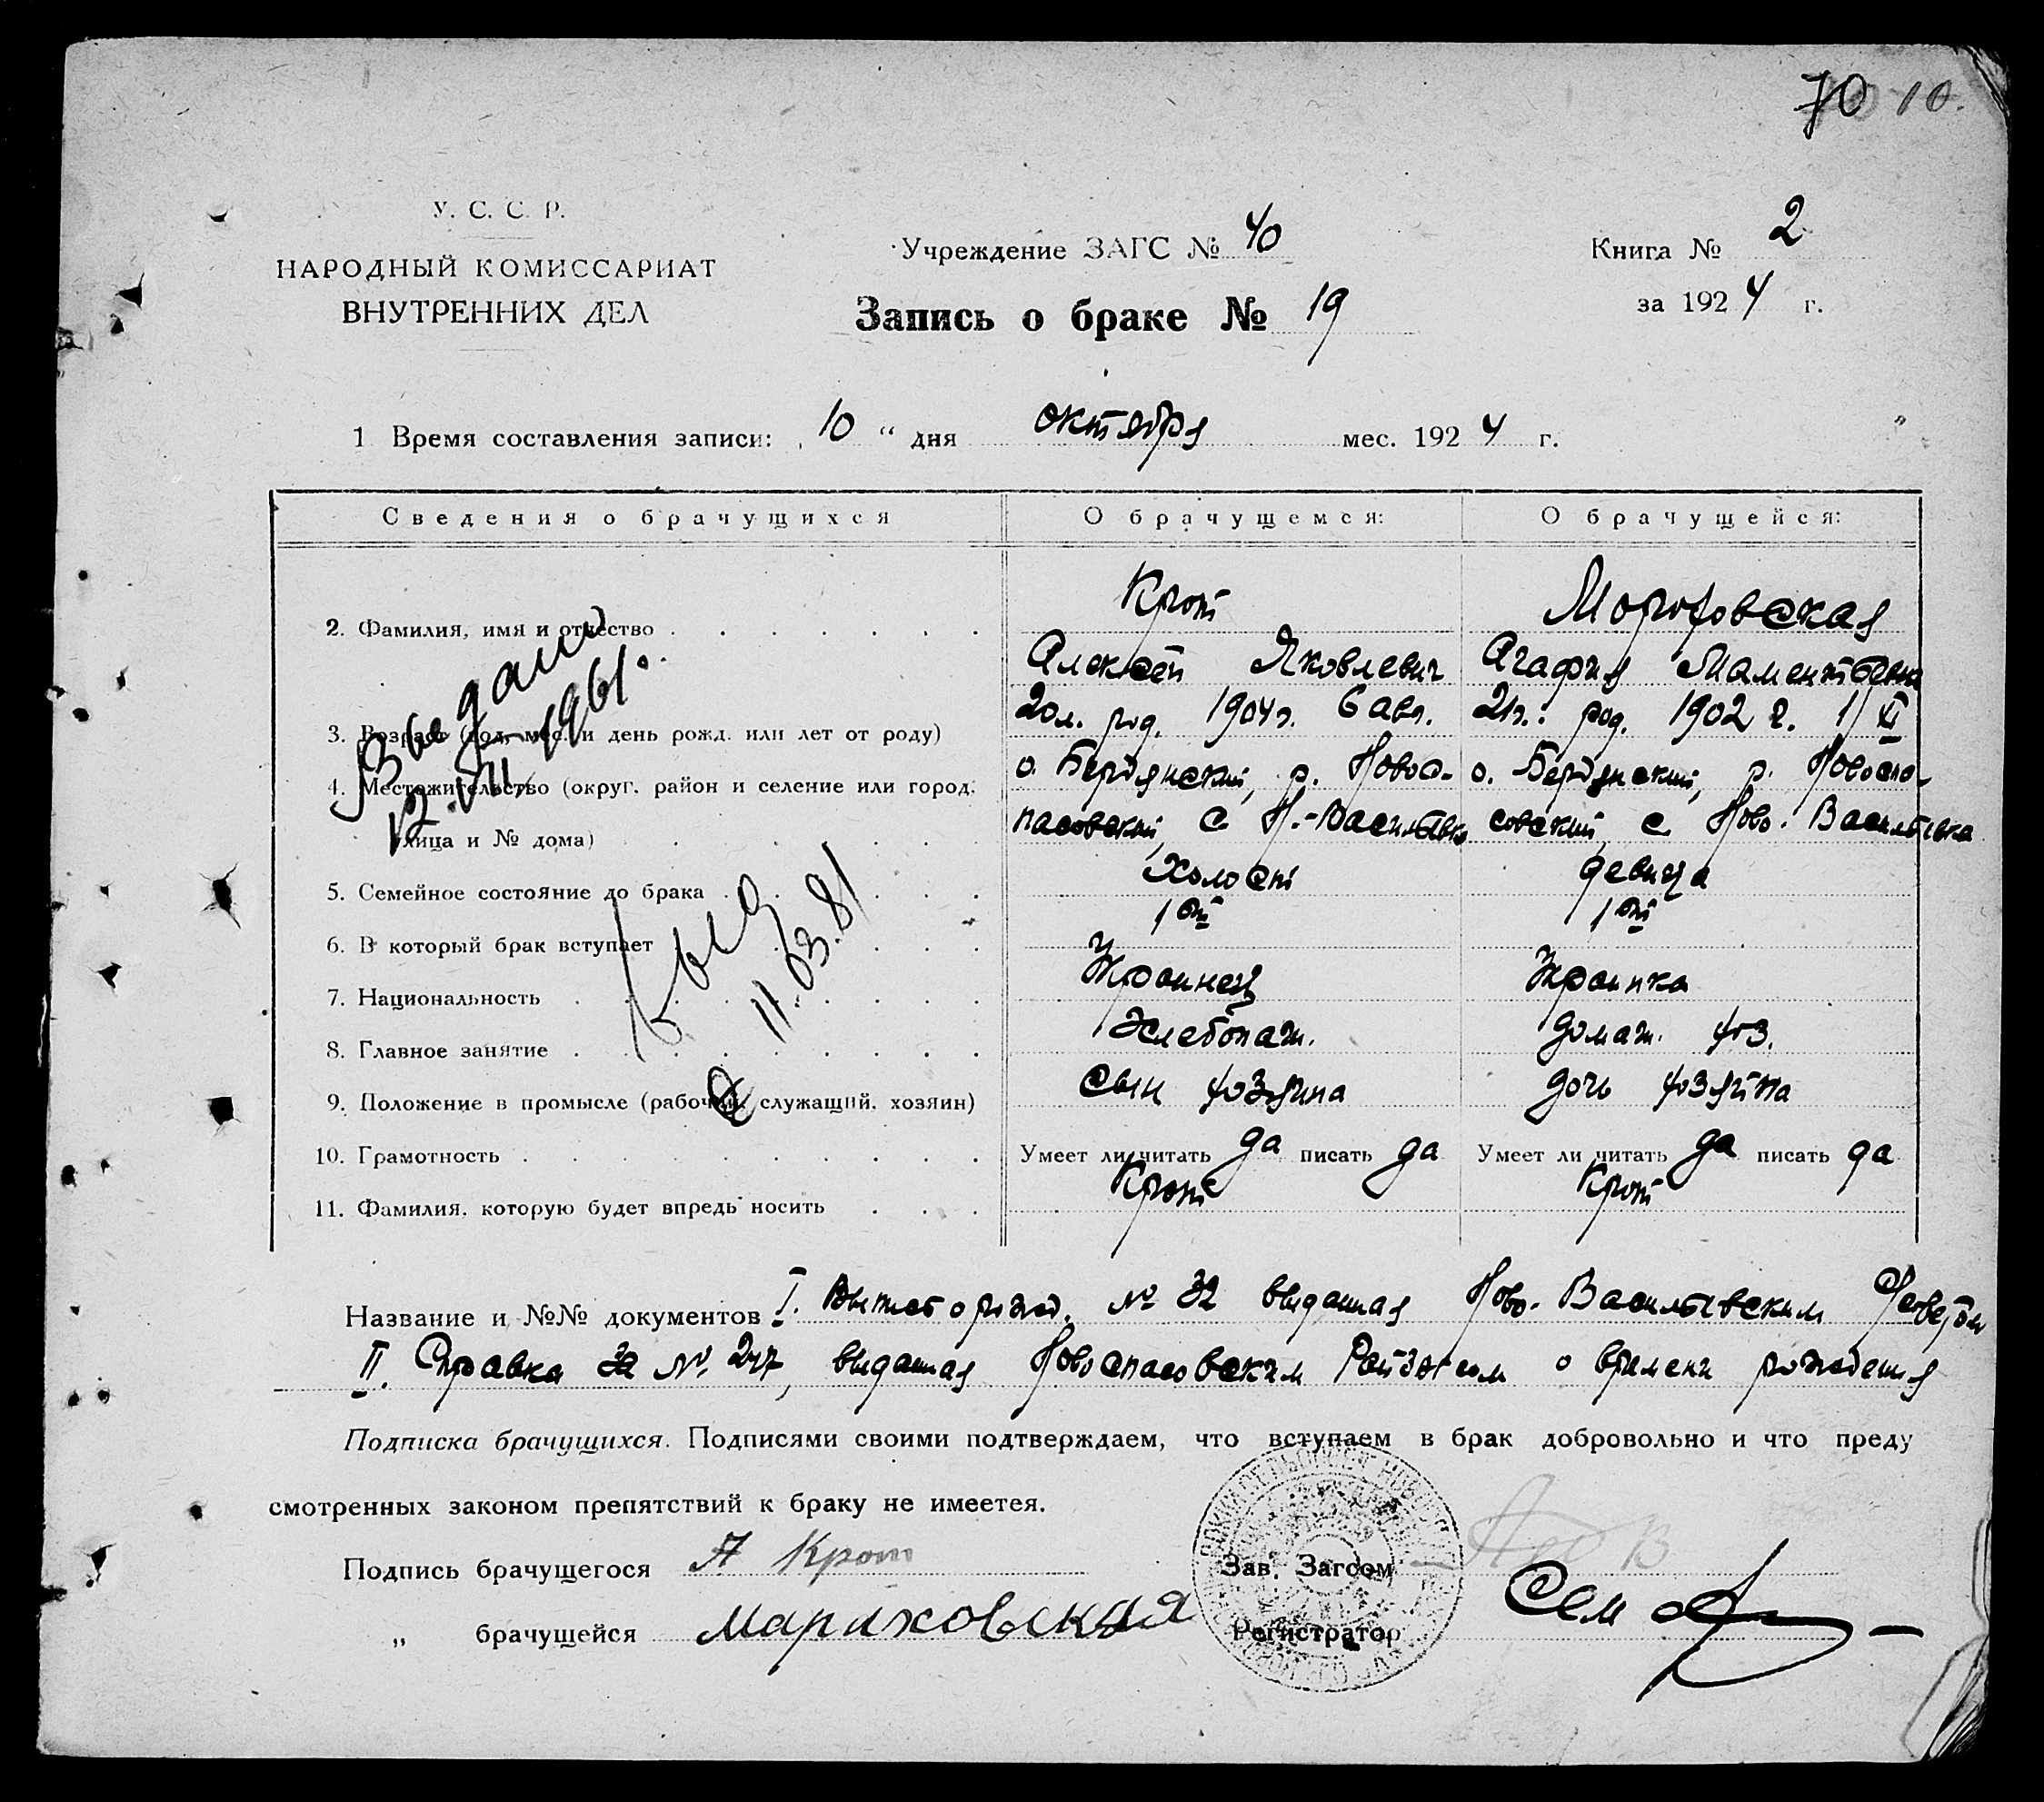 70 10.
У. С. С. Р.
НАРОДНЫЙ КОМИССАРИАТ
ВНУТРЕННИХ ДЕЛ
Учреждение ЗАГС № 40
Книга № 2
за 1924 г.
Запись о браке № 19
1 Время составления записи: „ 10 “ дня октября мес. 1924 г.
Сведения о брачущихся О брачущемся: О брачущейся:
2. Фамилия, имя и отчество Крот
Алексей Яковлевич Агафия
3. Возраст (год, мес. и день рожд. или лет от роду) 20 л. род. 1904 г. 6 авг. 21 г. род. 1902 г. 1/XI
4. Местожительство (округ, район и селение или город, о. Бердянский, р. Новос- о. Бердянский, р. Новоспа-
улица и № дома) пасовский, с. Н.-Васильевка совский, с. Ново-Васильевка
5. Семейное состояние до брака холост девица
6. В который брак вступает 1ый 1ый
7. Национальность Украинец Украинка
8. Главное занятие Хлебопаш. домаш. хоз.
9. Положение в промысле (рабочий, служащий, хозяин) сын хозяина дочь хозяина
10. Грамотность Умеет ли читать да писать да Умеет ли читать да писать да
11. Фамилия, которую будет впредь носить Крот Крот
Выдано
12.VII-1961г.
Выд
11.03.81
Название и №№ документов I. о рожд. № 32 выданная Ново-Васильевским
II. Справка за № 247, выданная Новоспасовским Райзагсом о времени рождения
Подписка брачущихся. Подписями своими подтверждаем, что вступаем в брак добровольно и что преду
смотренных законом препятствий к браку не имеетея.
Подпись брачущегося А Крот
Зав. Загсом
„ брачущейся Мариховская
Регистратор